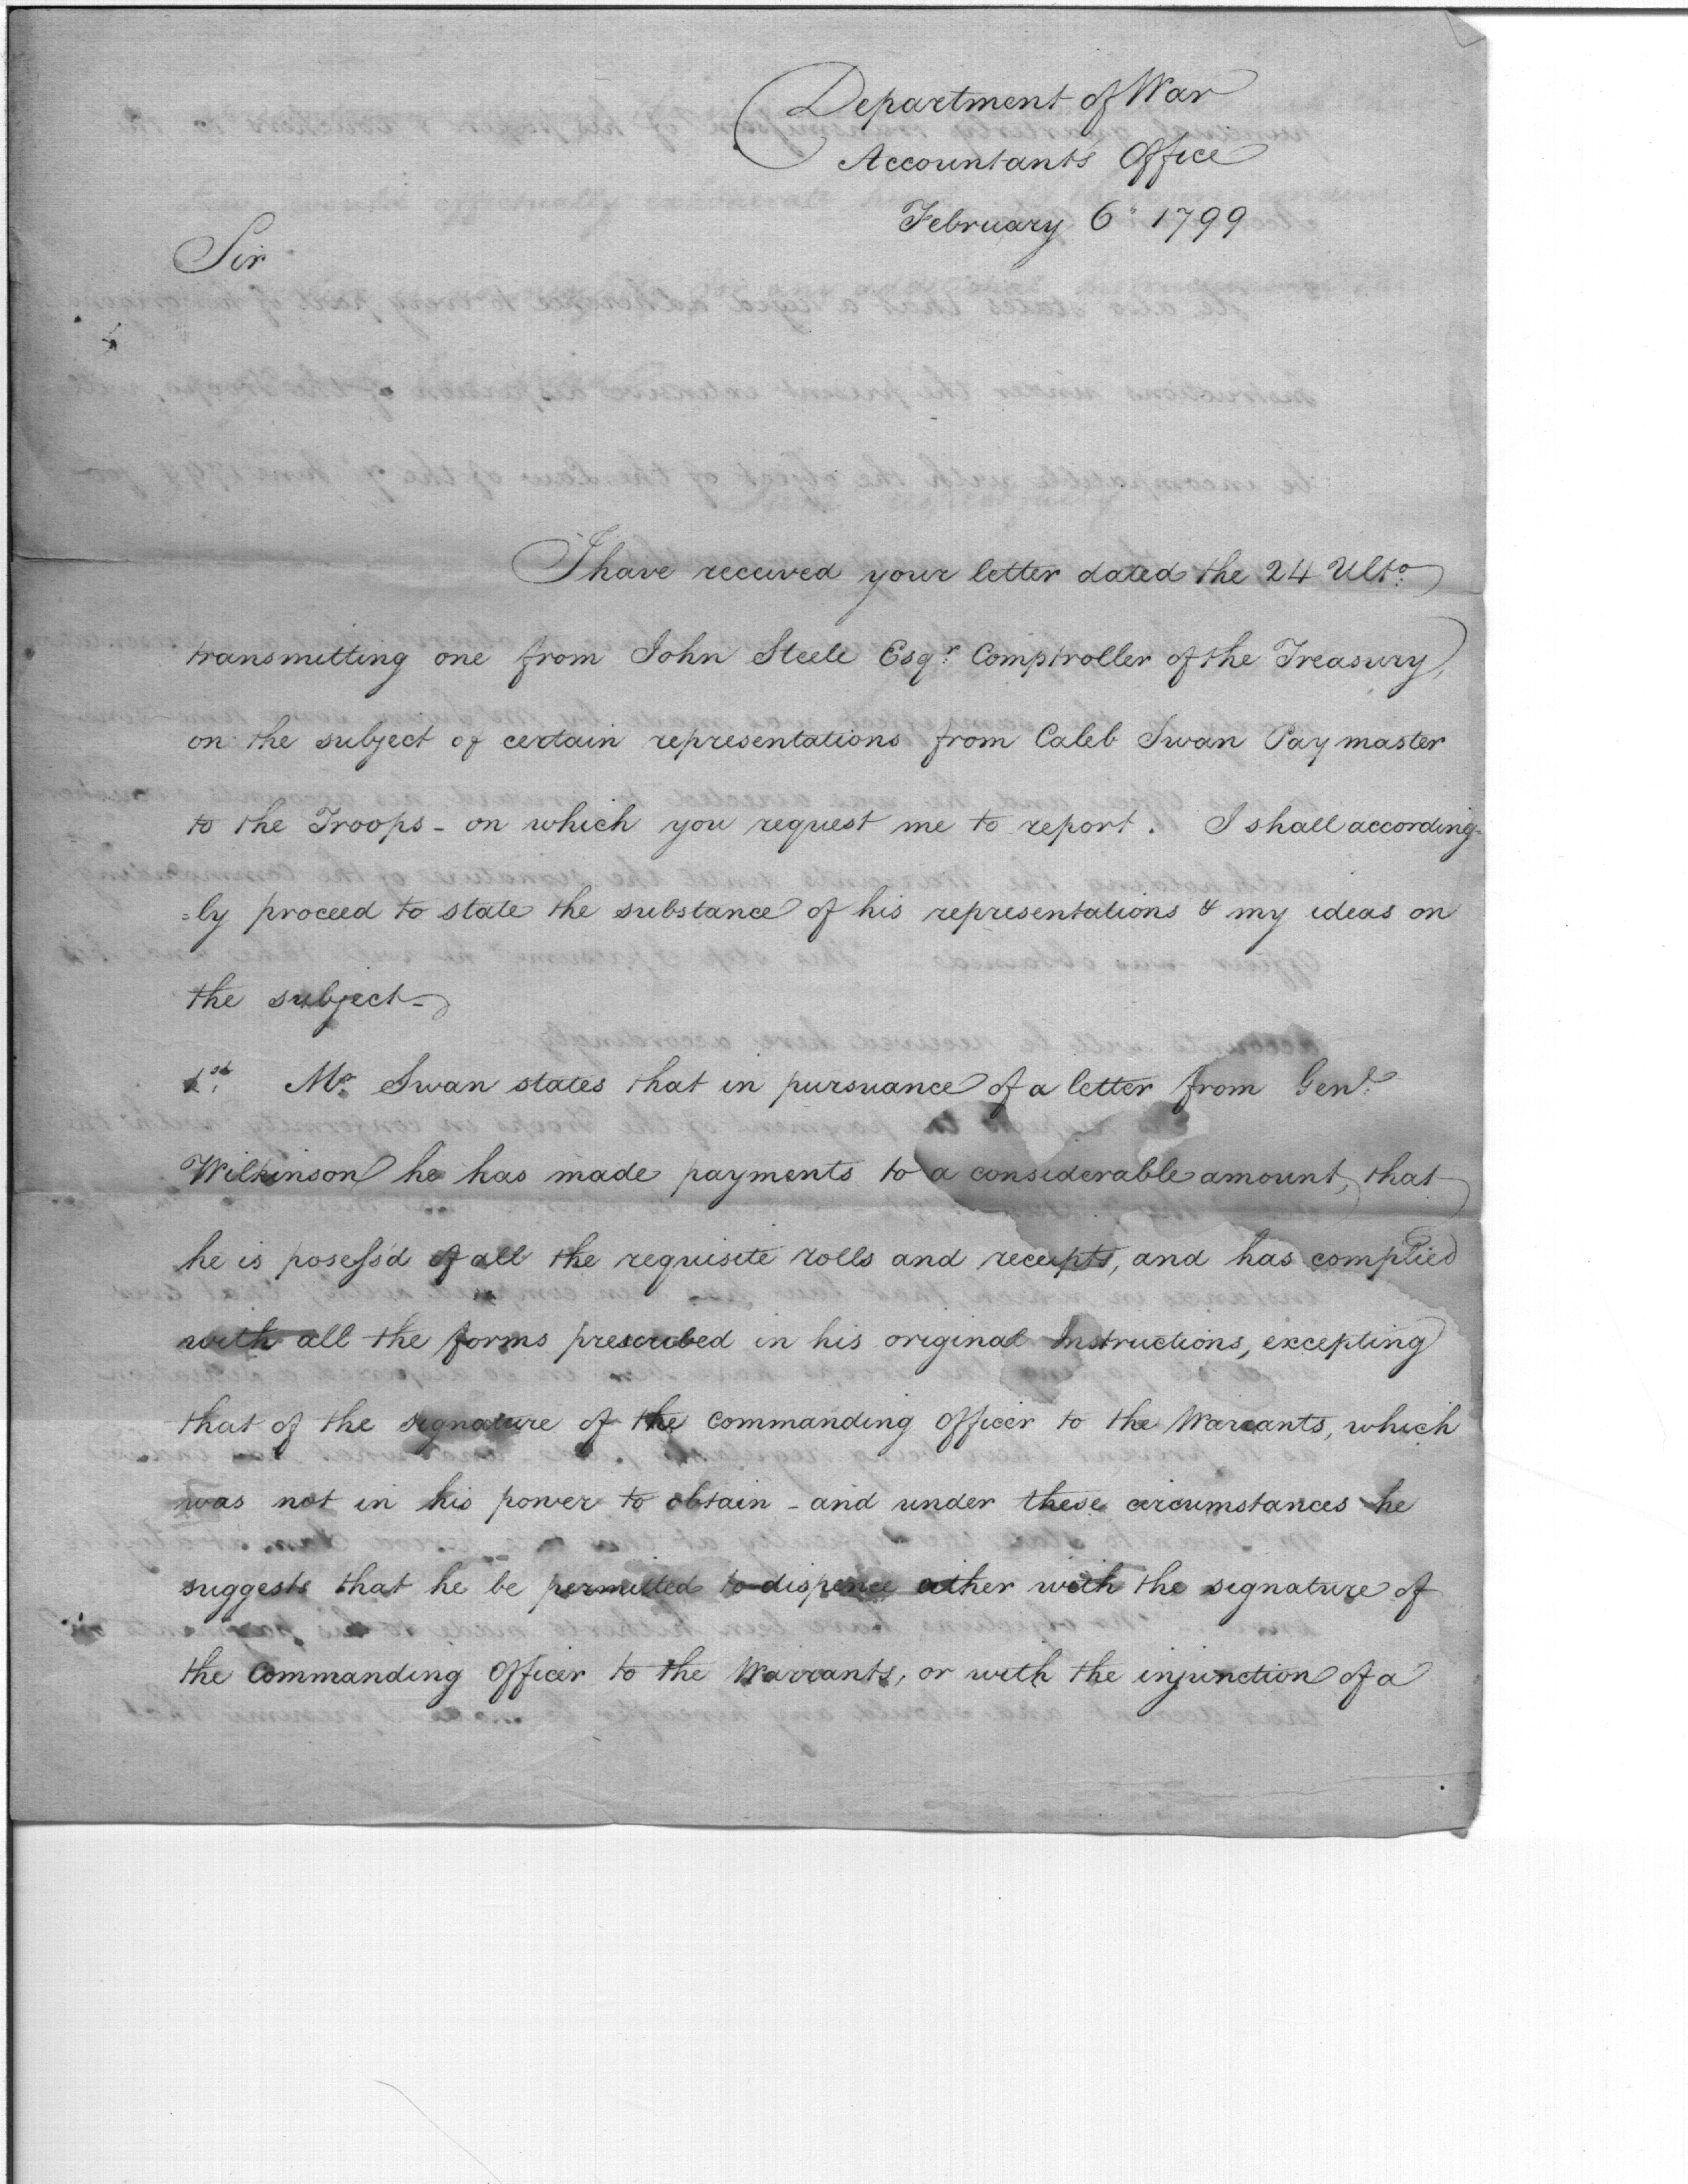 Department of War
Accountants Office
February 6" 1799
Sir
I have received your letter dated the 24 Ulto.
transmitting one from John Steele Esqr. Comptroller of the Treasury,
on the subject of certain representations from Caleb Swan Paymaster
to the Troops - on which you request me to report. I shall according-
=ly proceed to state the substance of his representations & my ideas on
the subject -
1st. Mr. Swan states that in pursuance of a letter from Genl.
Wilkinson he has made payments to a considerable amount, that
he is posess'd of all the requisite rolls and receipts, and has complied
with all the forms prescribed in his original Instructions, excepting
that of the signature of the Commanding Officer to the Warrants, which
was not in his power to obtain - and under these circumstances he
suggests that he be permitted to dispence either with the signature of
the Commanding Officer to the Warrants, or with the injunction of a